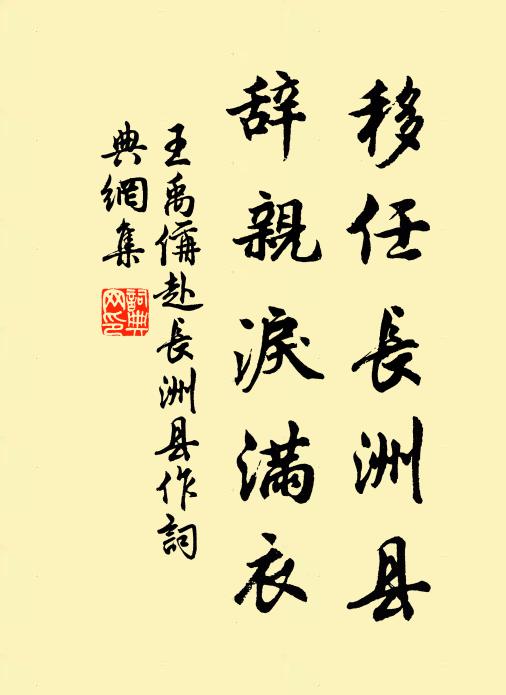 移任長洲县
辞親淚满衣
王禹偁赴長洲县作詞
典網集
詞典網印